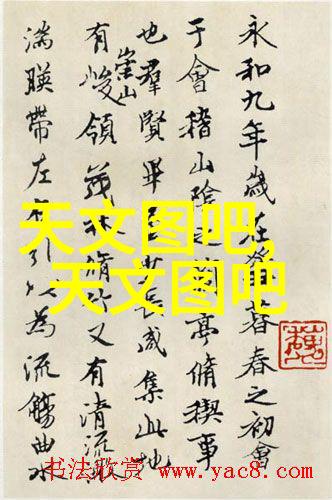 永和九年歲在暮春之初會
于會稽山陰之蘭亭脩稧事
也羣賢畢至少長咸集此地
有崇山峻領茂林脩竹又有清流激
湍暎帶左右引以為流觴曲水
天文图吧,
天文图吧
书法欣赏 www.yac8.com